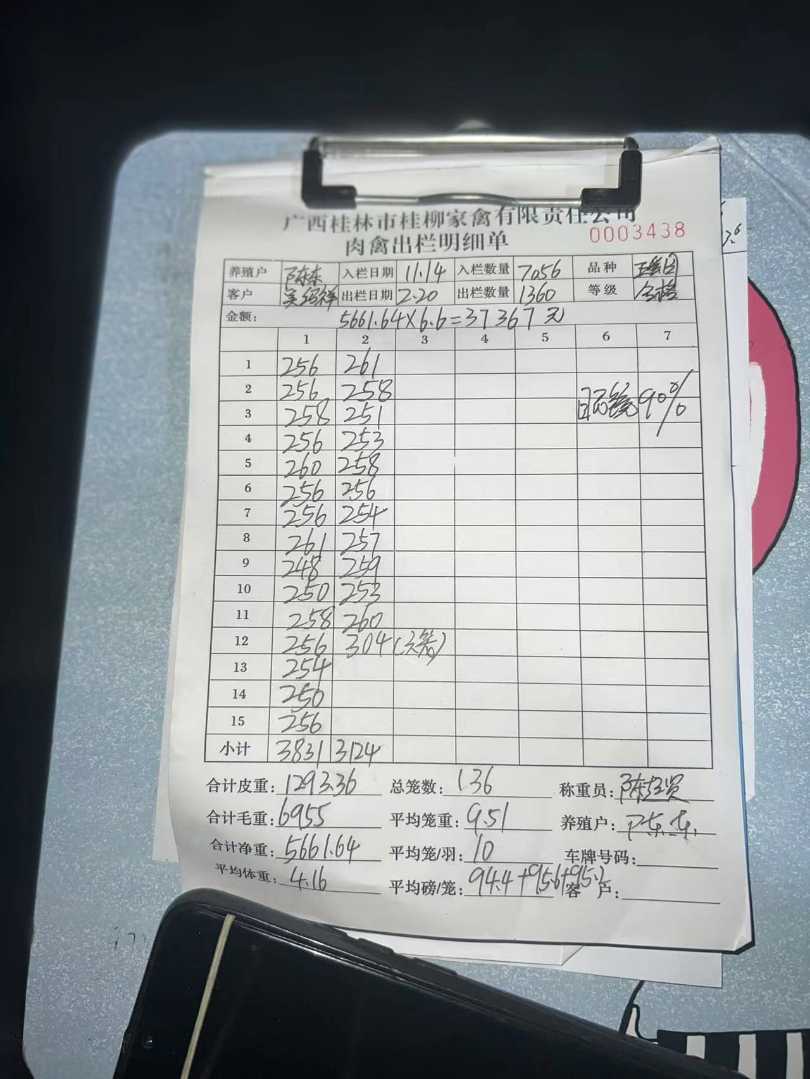 广西桂林市桂柳家禽有限责任公司
肉禽出栏明细单 0003438
养殖户 陈东 入栏日期 11.14 入栏数量 7056 品种
客户 出栏日期 2.20 出栏数量 1360 等级 合格
金额: 5661.64×6.6=37367元
1 2 3 4 5 6 7
1 256 261
2 256 258
3 258 251 90%
4 256 253
5 260 258
6 256 256
7 256 254
8 261 257
9 248 259
10 250 253
11 258 260
12 256 304(3笼)
13 254
14 250
15 256
小计 3831 3124
合计皮重: 1293.36 总笼数: 136 称重员:
合计毛重: 6955 平均笼重: 9.51 养殖户: 陈东
合计净重: 5661.64 平均笼/羽: 10 车牌号码:
平均体重: 4.16 平均磅/笼: 94.4+95.6+95.2 客户: